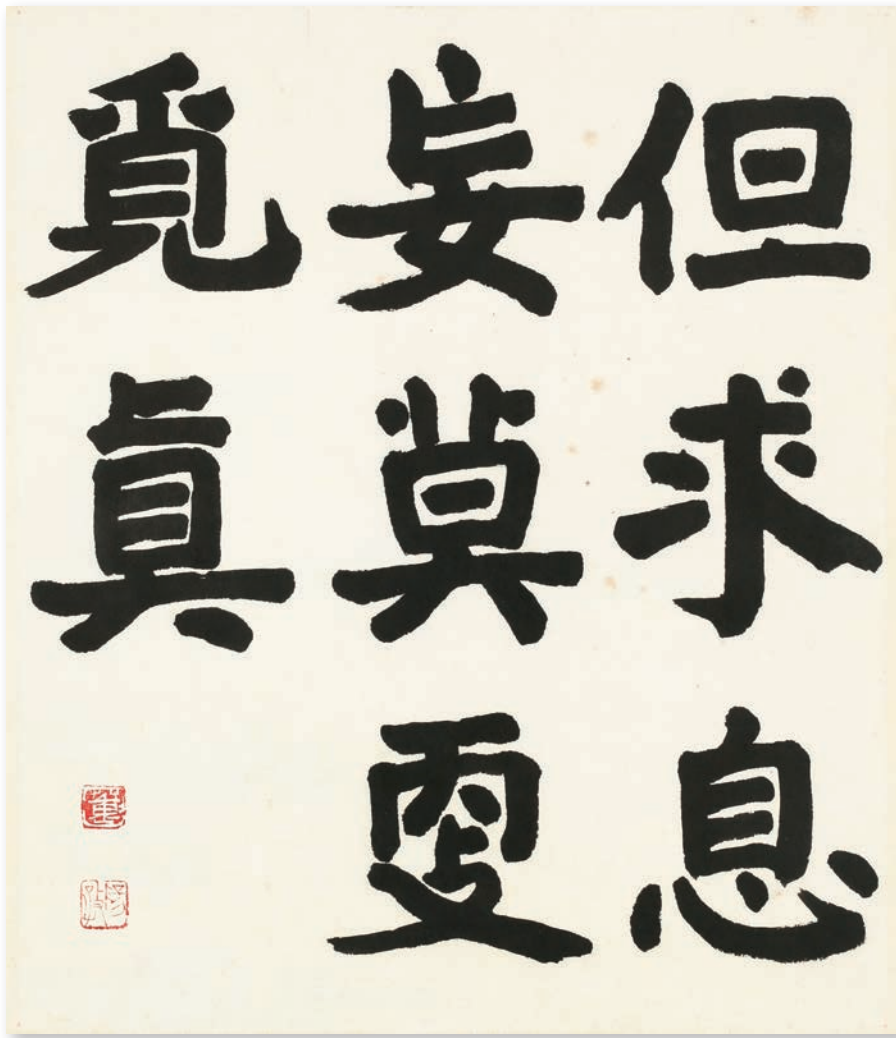 但求息
妄莫更
覓真